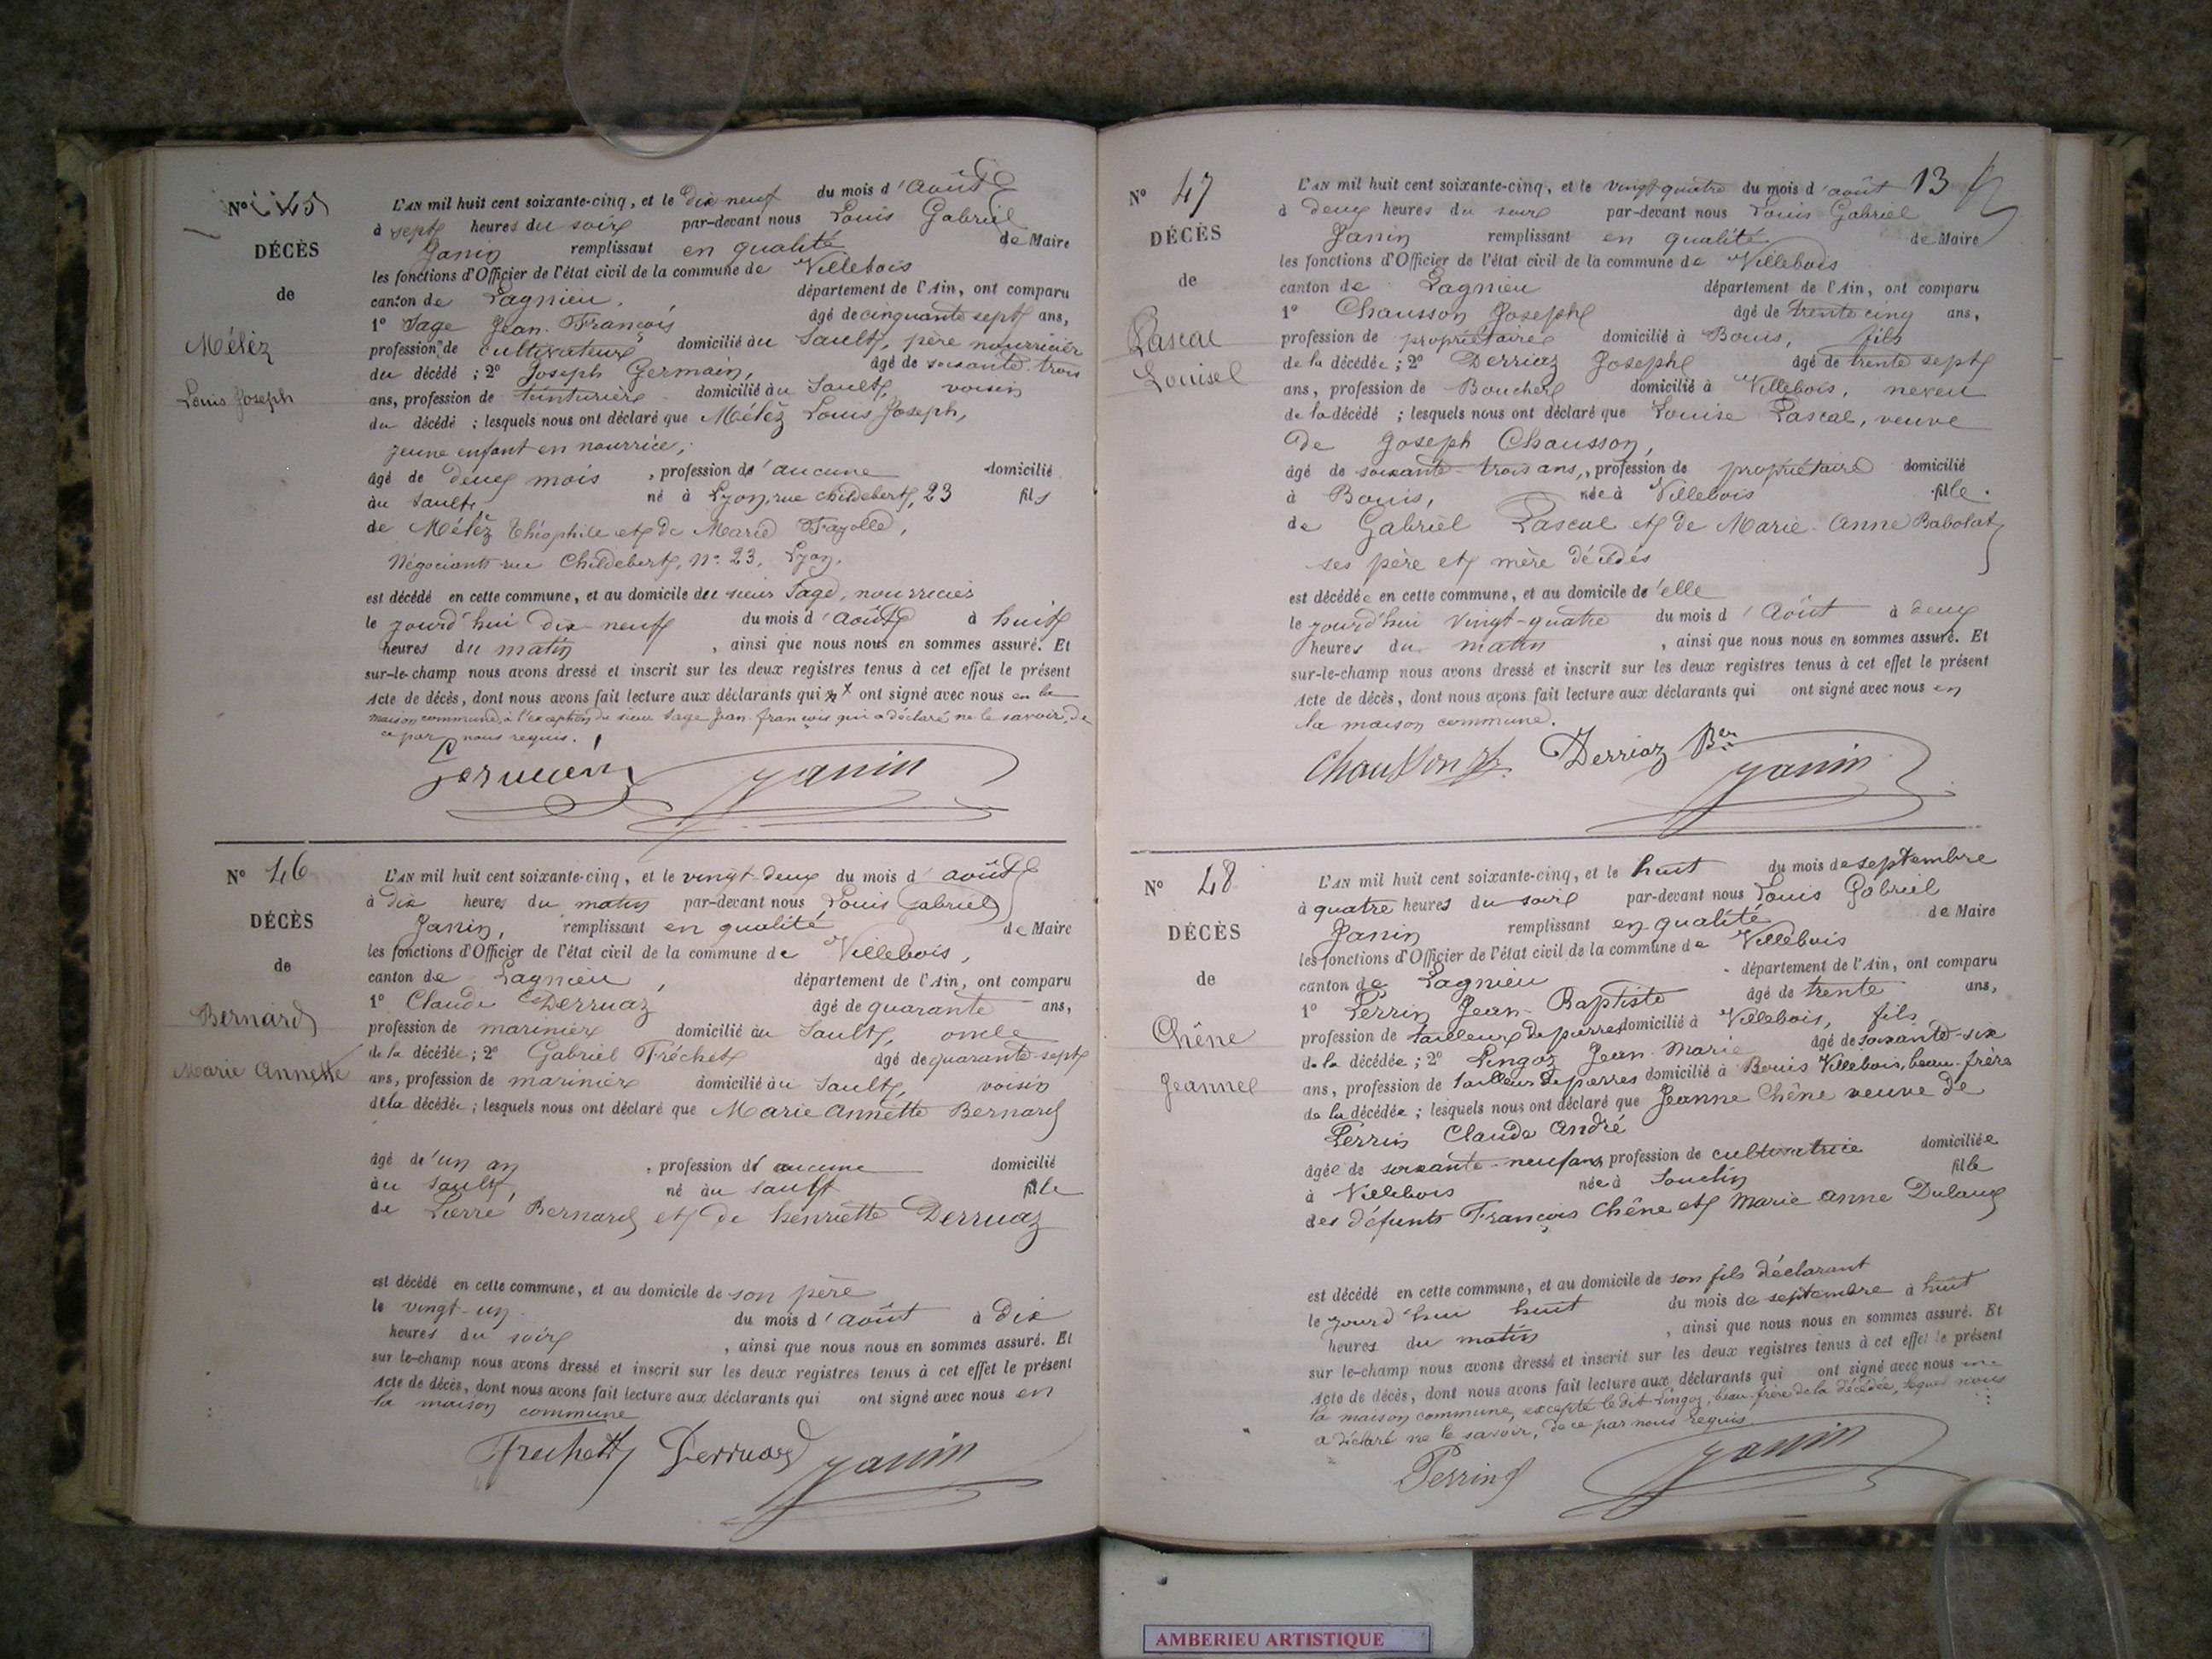 N° 45
DÉCÈS
de
Mélèz
Louis Joseph
L'AN mil huit cent soixante-cinq, et le dix neuf du mois d'août
à sept heures du soir par-devant nous Louis Gabriel
Janin remplissant en qualité de Maire
les fonctions d'Officier de l'état civil de la commune de Villebois
canton de Lagnieu, département de l'Ain, ont comparu
1° Sage Jean-François âgé de cinquante sept ans,
profession de cultivateur domicilié au Sault, père nourricier
du décédé ; 2° Joseph Germain, âgé de soixante-trois
ans, profession de teinturier domicilié au Sault, voisin
du décédé ; lesquels nous ont déclaré que Mélèz Louis Joseph,
jeune enfant en nourrice,
âgé de deux mois, profession d'aucune domicilié
au Sault, né à Lyon, rue Childebert, 23 fils
de Mélèz Théophile et de Marie Fayolle,
Négociants rue Childebert, N° 23, Lyon.
est décédé en cette commune, et au domicile du sieur Sage, nourricier
le jourd'hui dix-neuf du mois d'août à huit
heures du matin, ainsi que nous nous en sommes assuré. Et
sur-le-champ nous avons dressé et inscrit sur les deux registres tenus à cet effet le présent
Acte de décès, dont nous avons fait lecture aux déclarants qui ont signé avec nous en la
maison commune, à l'exception du sieur Sage Jean-françois qui a déclaré ne le savoir, de
ce par nous requis.
Germain Janin
N° 46
DÉCÈS
de
Bernard
Marie Annette
L'AN mil huit cent soixante-cinq, et le vingt-deux du mois d'août
à dix heures du matin par-devant nous Louis Gabriel
Janin, remplissant en qualité de Maire
les fonctions d'Officier de l'état civil de la commune de Villebois,
canton de Lagnieu, département de l'Ain, ont comparu
1° Claude Derruaz âgé de quarante ans,
profession de marinier domicilié au Sault, oncle
de la décédée ; 2° Gabriel Fréchet âgé de quarante-sept
ans, profession de marinier domicilié au Sault, voisin
de la décédée ; lesquels nous ont déclaré que Marie Annette Bernard
âgé d'un an, profession d'aucune domicilié
au Sault, né au Sault fille
de Pierre Bernard et de henriette Derruaz
est décédé en cette commune, et au domicile de son père
le vingt-un du mois d'août à dix
heures du soir, ainsi que nous nous en sommes assuré. Et
sur le-champ nous avons dressé et inscrit sur les deux registres tenus à cet effet le présent
Acte de décès, dont nous avons fait lecture aux déclarants qui ont signé avec nous en
la maison commune
Frechet Derruaz Janin
13
N° 47
DÉCÈS
de
Pascal
Louise
L'AN mil huit cent soixante-cinq, et le vingt-quatre du mois d'août
à deux heures du soir par-devant nous Louis Gabriel
Janin remplissant en qualité de Maire
les fonctions d'Officier de l'état civil de la commune de Villebois
canton de Lagnieu département de l'Ain, ont comparu
1° Chausson Joseph âgé de trente cinq ans,
profession de propriétaire domicilié à Bouis, fils
de la décédée ; 2° Derriaz Joseph âgé de trente sept
ans, profession de Boucher domicilié à Villebois, neveu
de la décédé ; lesquels nous ont déclaré que Louise Pascal, veuve
de Joseph Chausson,
âgé de soixante-trois ans, profession de propriétaire domicilié
à Bouis, née à Villebois fille
de Gabriel Pascal et de Marie-Anne Babolat
ses père et mère décédés
est décédée en cette commune, et au domicile d'elle
le jourd'hui vingt-quatre du mois d'Août à deux
heures du matin, ainsi que nous nous en sommes assuré. Et
sur-le-champ nous avons dressé et inscrit sur les deux registres tenus à cet effet le présent
Acte de décès, dont nous avons fait lecture aux déclarants qui ont signé avec nous en
la maison commune.
Chausson Derriaz Janin
N° 48
DÉCÈS
de
Chêne
Jeanne
L'AN mil huit cent soixante-cinq, et le huit du mois de septembre
à quatre heures du soir par-devant nous Louis Gabriel
Janin remplissant en qualité de Maire
les fonctions d'Officier de l'état civil de la commune de Villebois
canton de Lagnieu département de l'Ain, ont comparu
1° Perrin Jean-Baptiste âgé de trente ans,
profession de tailleur de pierres domicilié à Villebois, fils
de la décédée ; 2° Pingoz Jean-Marie âgé de soixante-six
ans, profession de tailleur de pierres domicilié à Bouis Villebois, beau-frère
de la décédée ; lesquels nous ont déclaré que Jeanne Chêne veuve de
Perrin Claude André
âgée de soixante-neuf ans, profession de cultivatrice domiciliée
à Villebois née à Souclin fille
des défunts François Chêne et Marie Anne Dulaux
est décédé en cette commune, et au domicile de son fils déclarant
le jourd'hui huit du mois de septembre à huit
heures du matin, ainsi que nous nous en sommes assuré. Et
sur le-champ nous avons dressé et inscrit sur les deux registres tenus à cet effet le présent
Acte de décès, dont nous avons fait lecture aux déclarants qui ont signé avec nous en
la maison commune, excepté le dit Pingoz, beau-frère de la décédée, lequel nous
a déclaré ne le savoir, de ce par nous requis
Perrin Janin
AMBERIEU ARTISTIQUE